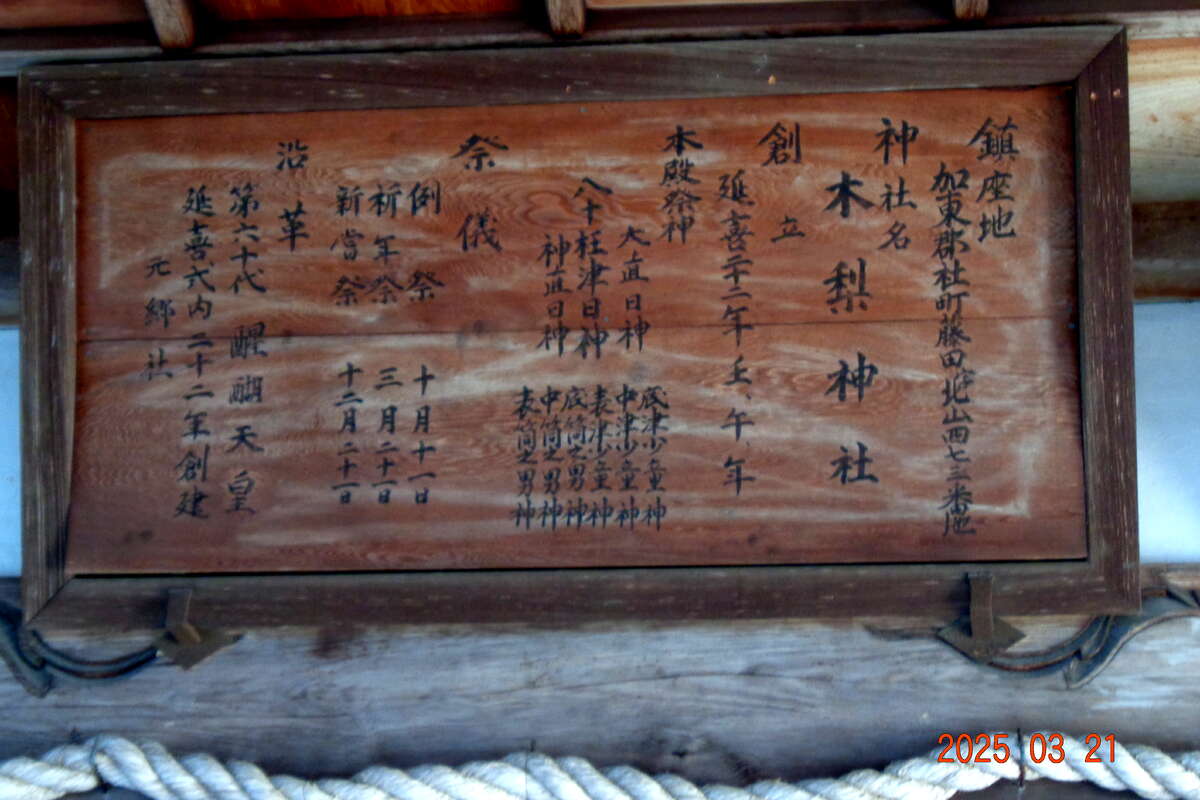 鎮座地
加東郡社町藤田字北山四七三番地
神社名
木梨神社
創立
延喜二十二年壬、午、年
本殿祭神
大直日神
八十枉津日神
神直日神
底津少童神
中津少童神
表津少童神
底筒之男神
中筒之男神
表筒之男神
祭儀
例祭 十月十一日
祈年祭 三月二十一日
新嘗祭 十二月二十一日
沿革
第六十代 醍醐天皇
延喜式内二十二年創建
元郷社
2025 03 21